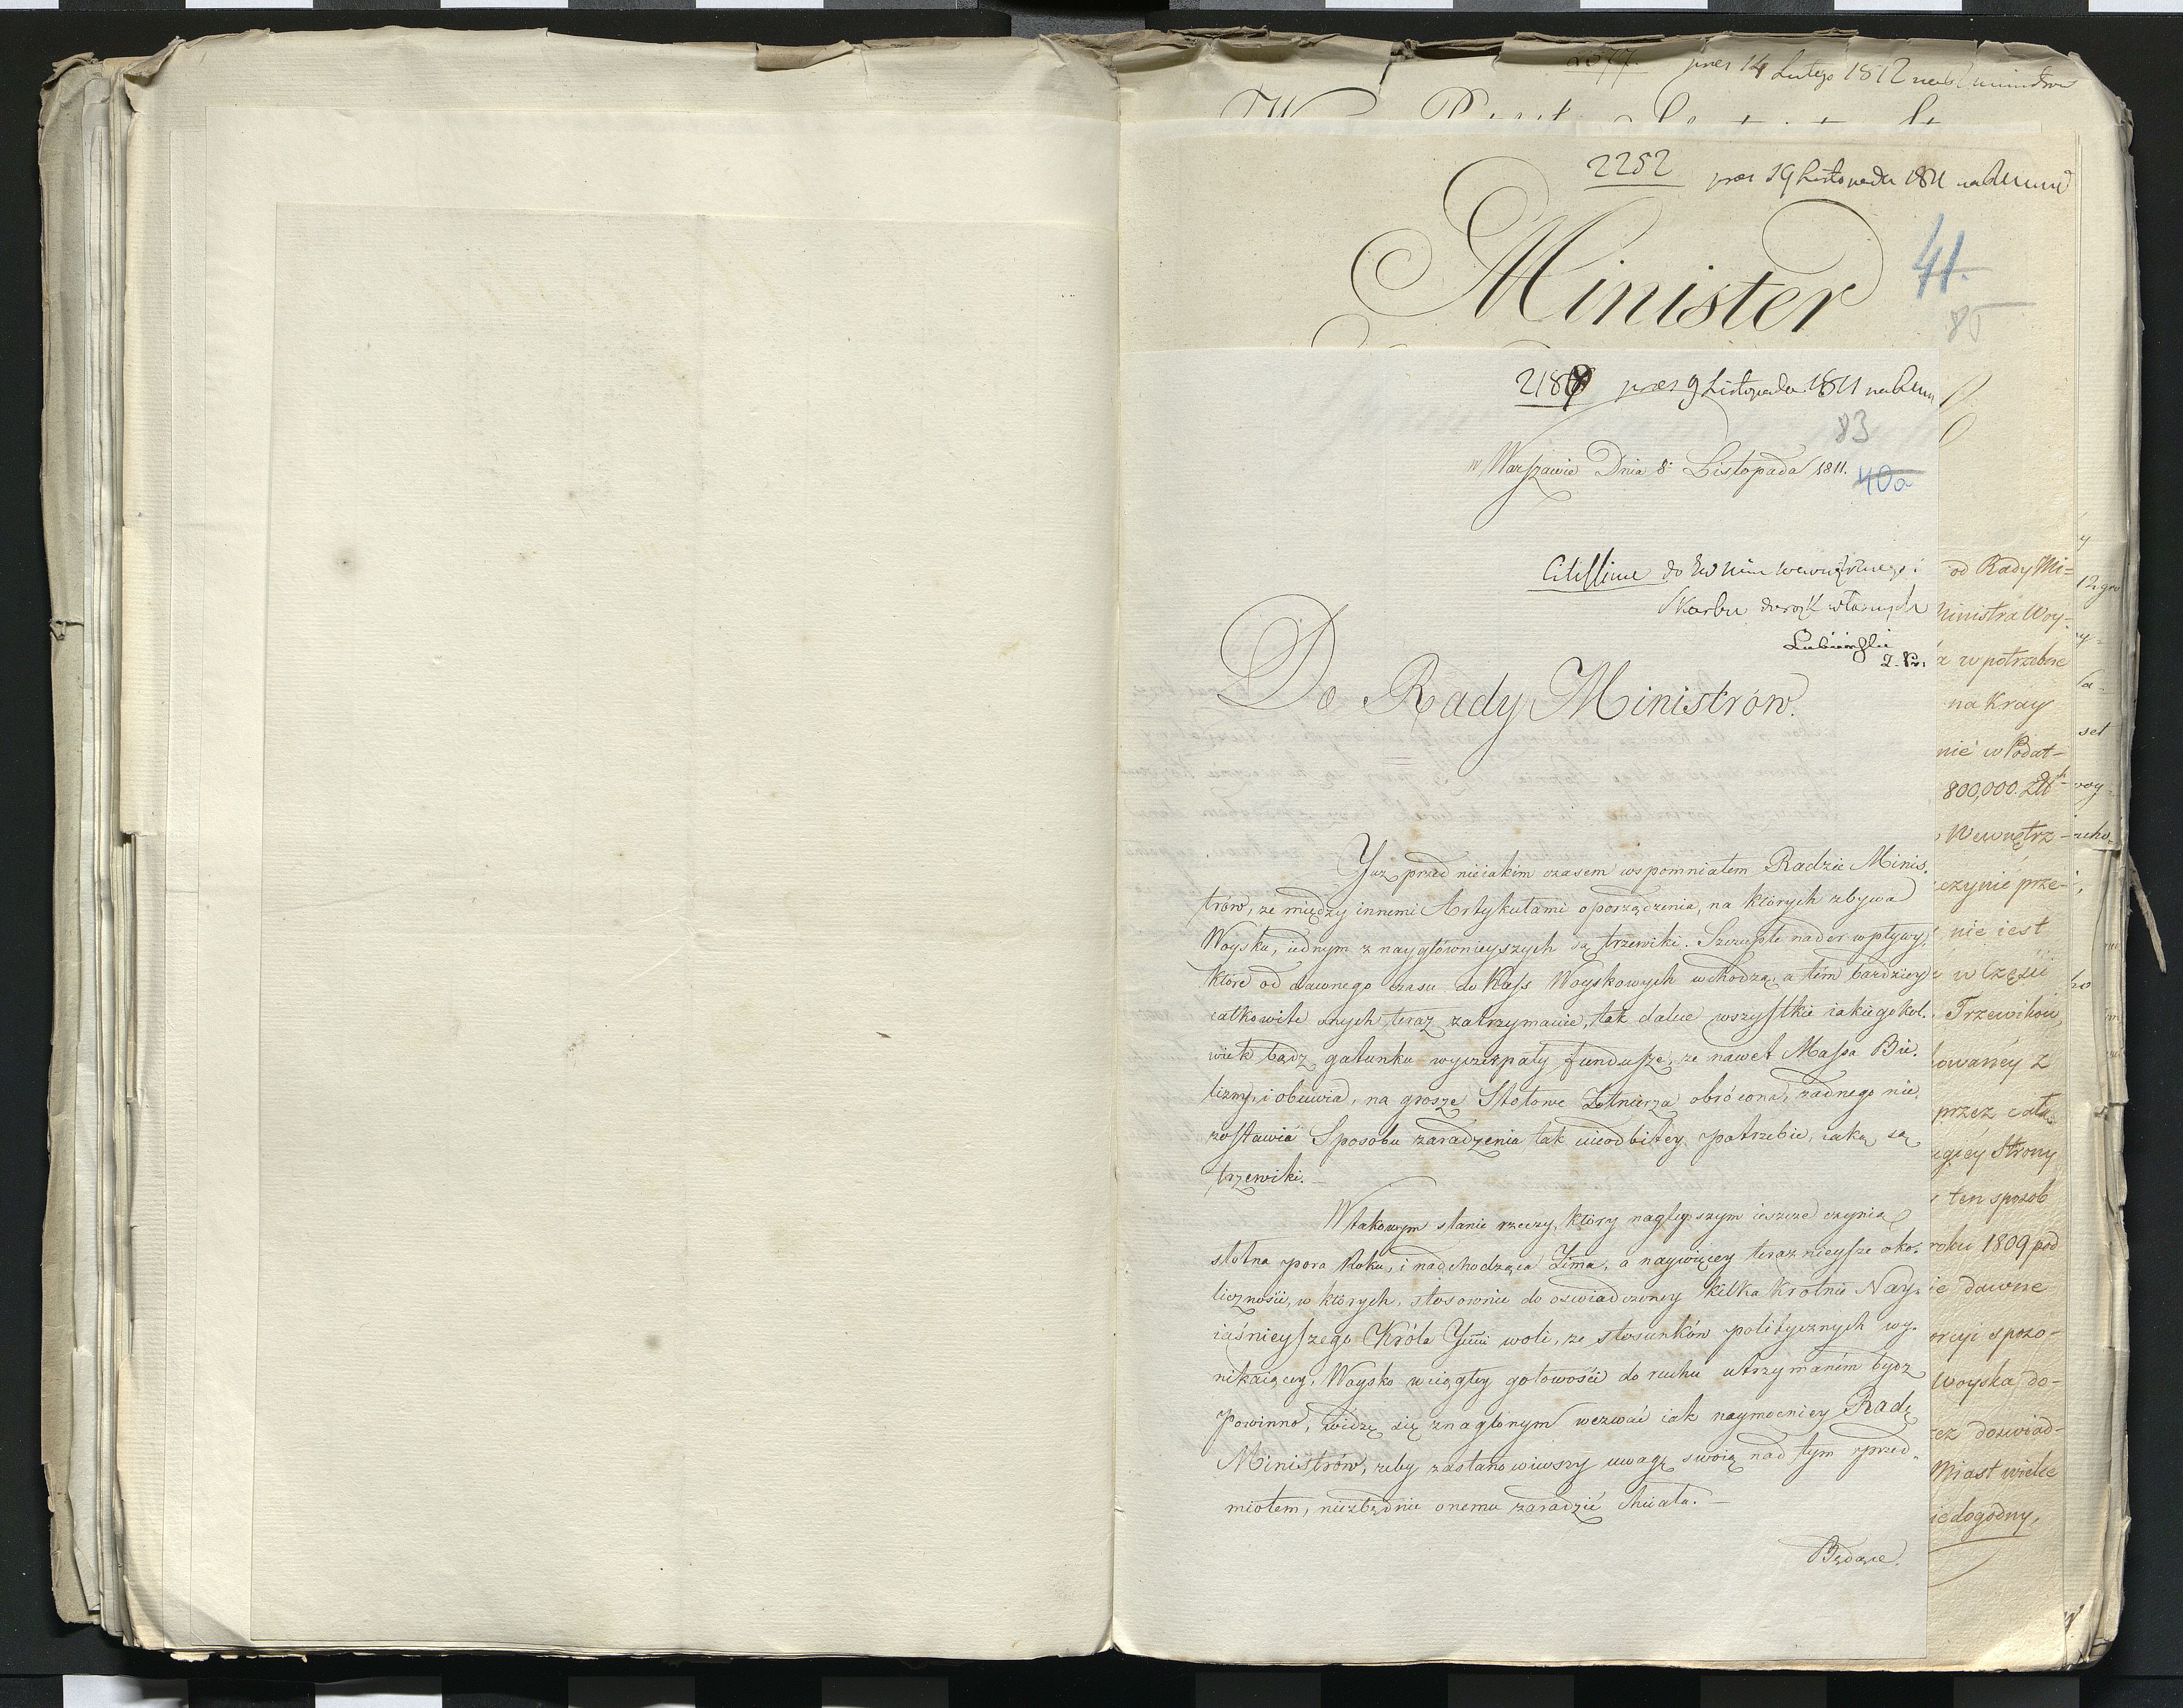 pres 14 Lutego 1812
2252 pres 19 Listopada 1811
Minister
41.
85
218 pres 9 Listopada 1811
83
w Warszawie Dnia 8 Listopada 1811.
40a
Citissime do
Skarbu do rąk własnych
Lubieński
Do Rady Ministrów.
Już przed nieiakim czasem wspomniałem Radzie Minis.
trów, że między innemi Artykułami oporządzenia, na których zbywa
Woysku, iednym z naygłównieyszych są trzewiki. Szczupłe nader wpływy,
które od dawnego czasu do Kass Woyskowych wchodzą, a tém bardziey
całkowite onych teraz zatrzymanie, tak dalece wszystkie iakiegokol.
wiek bądz gatunku wyczerpały fundusze, że nawet Massa Bie.
lizny, i obuwia, na grosze Stołowe Żołnierza obrócona, żadnego nie,
zostawia Sposobu zaradzenia tak nieodbitey potrzebie, iaką są
trzewiki.
W takowym stanie rzeczy, który nagleyszym ieszcze czynią
słotna pora Roku, i nadchodząca Zima, a naywięcey teraznieysze oko.
liczności, w których, stosownie do oswiadczoney kilka krotnie Nay.
iaśnieyszego Króla Jmci woli, ze stosunków politycznych wy.
nikaiącey, Woysko w ciągłey gotowości do ruchu utrzymaném bydz
powinno, widzę się znaglonym wezwać iak naymocniey Radę
Ministrów, żeby zastanowiwszy uwagę swoią nad tym przed.
miotem, niezbędnie onemu zaradzić chciała. —
Będące.
od Rady Mi=
Ministra Woy-
w potrzebie
na Kray
nić w Podat-
800,000. Złt
Wewnętrz-
czynić prze-
nie iest
w Części
Trzewików
przez całą
Strony
ten sposób
roku 1809 pod
dawne
Woyska do-
doswiad-
Miast wiele
iedogodny,